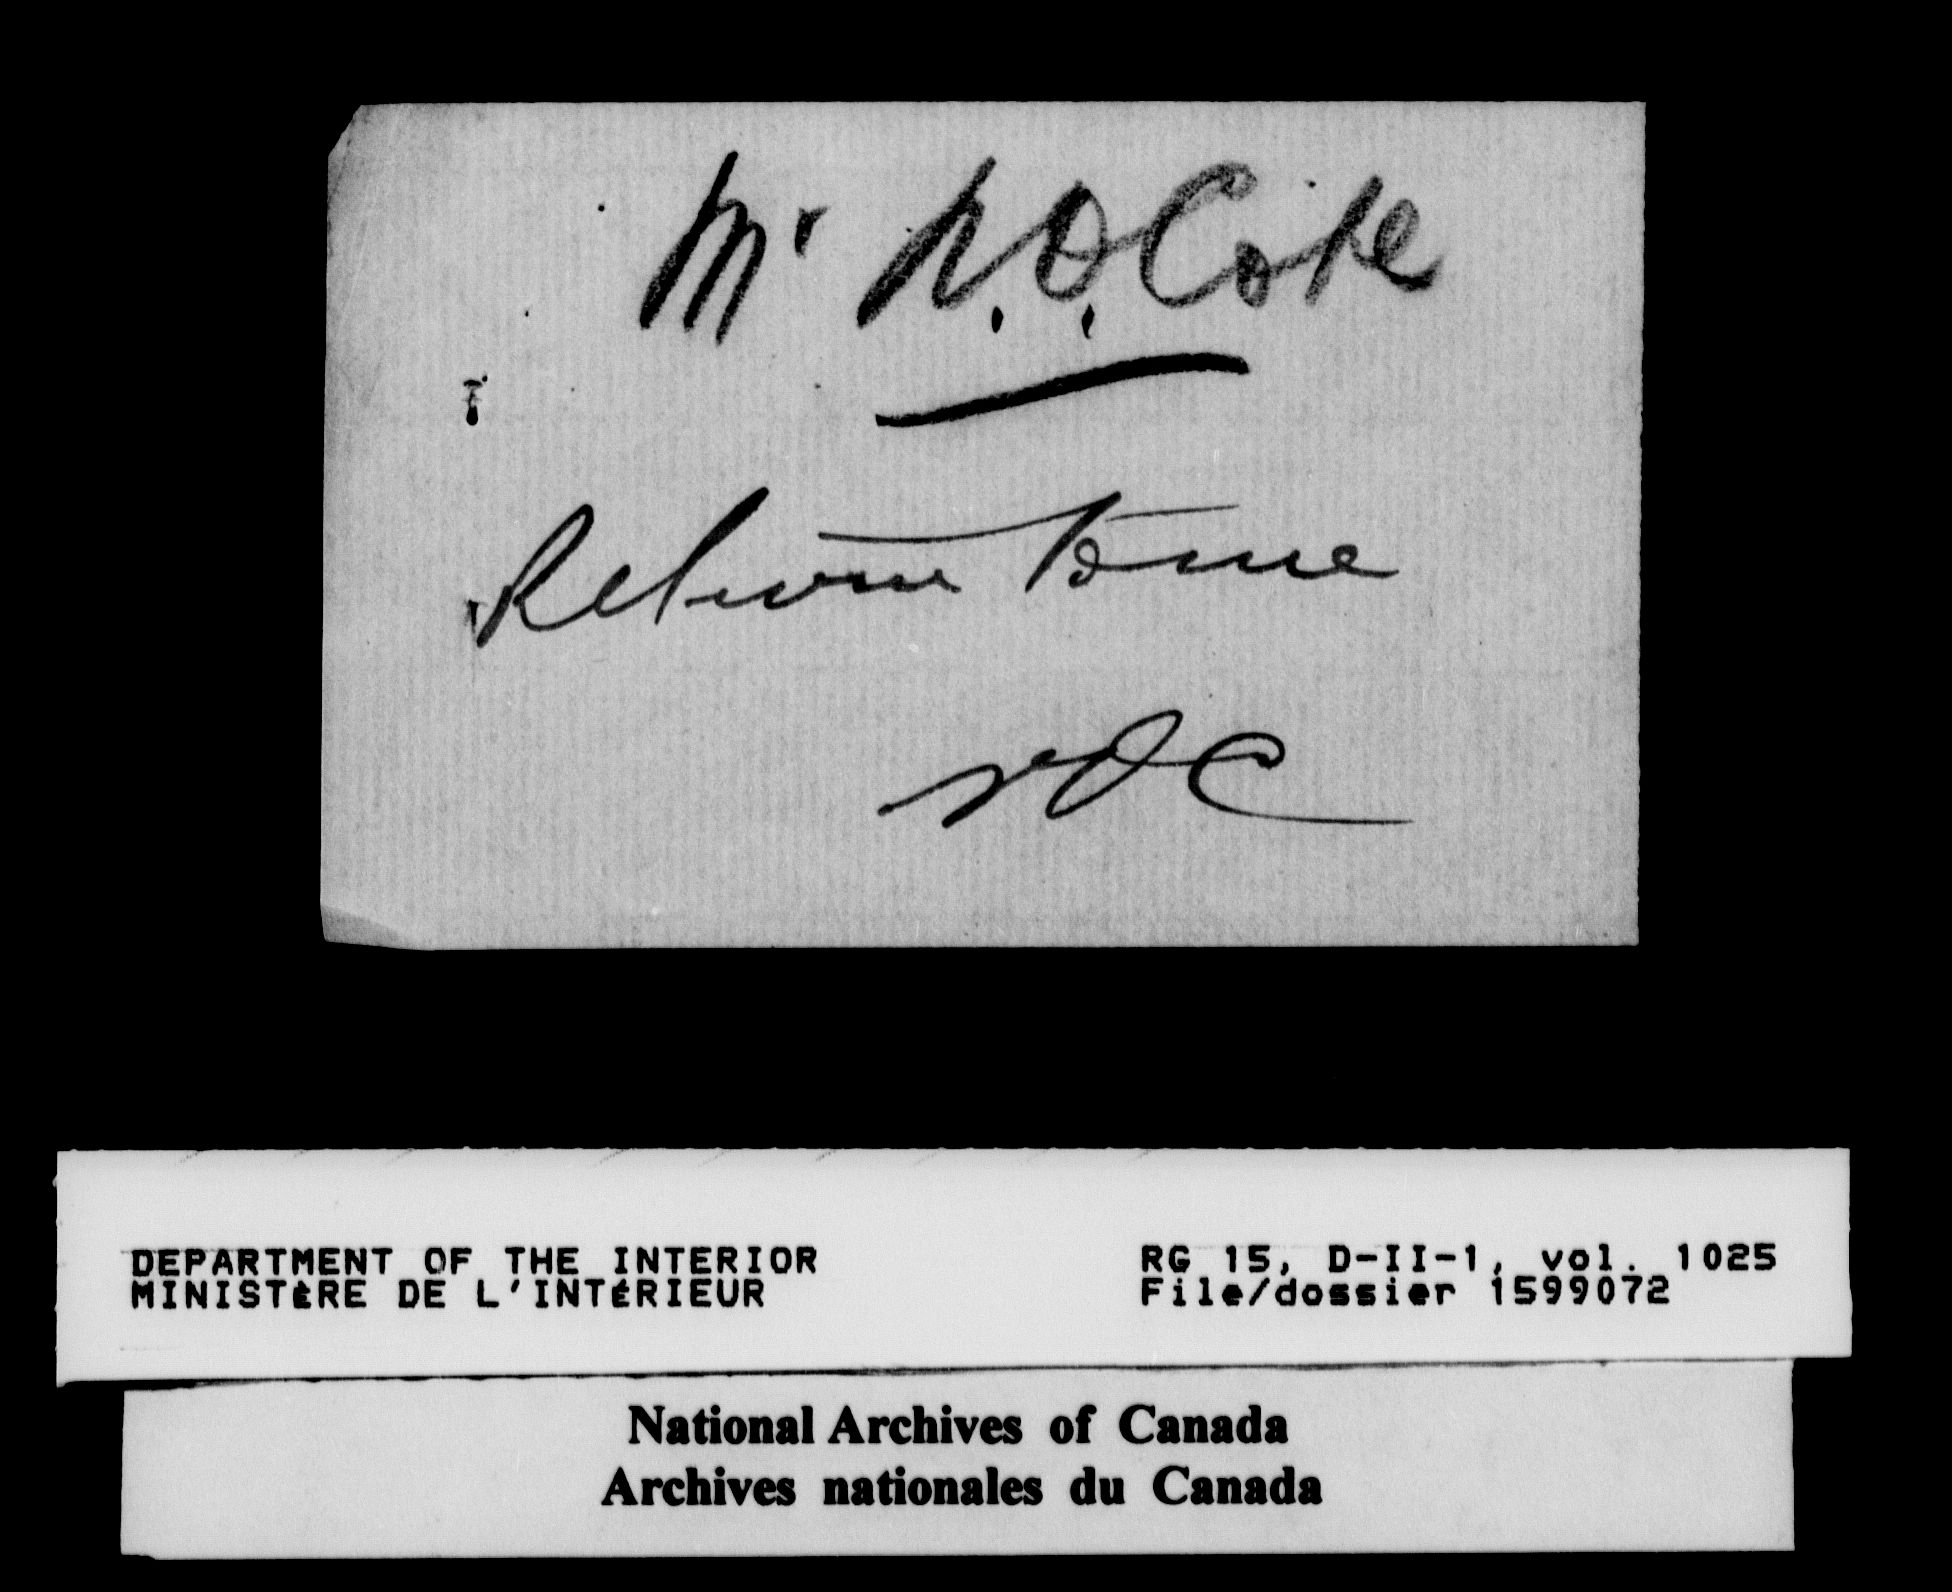 Mr N.O. Cote
Return to me
NOC
DEPARTMENT OF THE INTERIOR
MINISTÈRE DE L'INTÉRIEUR
RG 15, D-II-1, vol. 1025
File/dossier 1599072
National Archives of Canada
Archives nationales du Canada